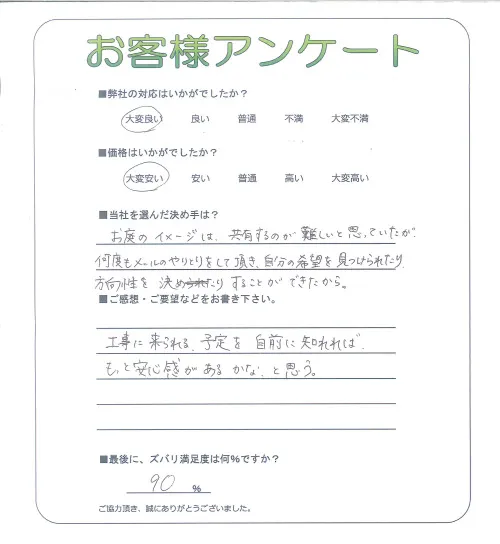 お客様アンケート
■弊社の対応はいかがでしたか?
大変良い 良い 普通 不満 大変不満
■価格はいかがでしたか?
大変安い 安い 普通 高い 大変高い
■当社を選んだ決め手は?
お庭のイメージは、共有するのが難しいと思っていたが、
何度もメールのやりとりをして頂き、自分の希望を見つけられたり、
方向性を決められたりすることができたから。
■ご感想・ご要望などをお書き下さい。
工事に来られる、予定を自前に知れれば、
もっと安心感があるかな、と思う。
■最後に、ズバリ満足度は何%ですか?
90 %
ご協力頂き、誠にありがとうございました。